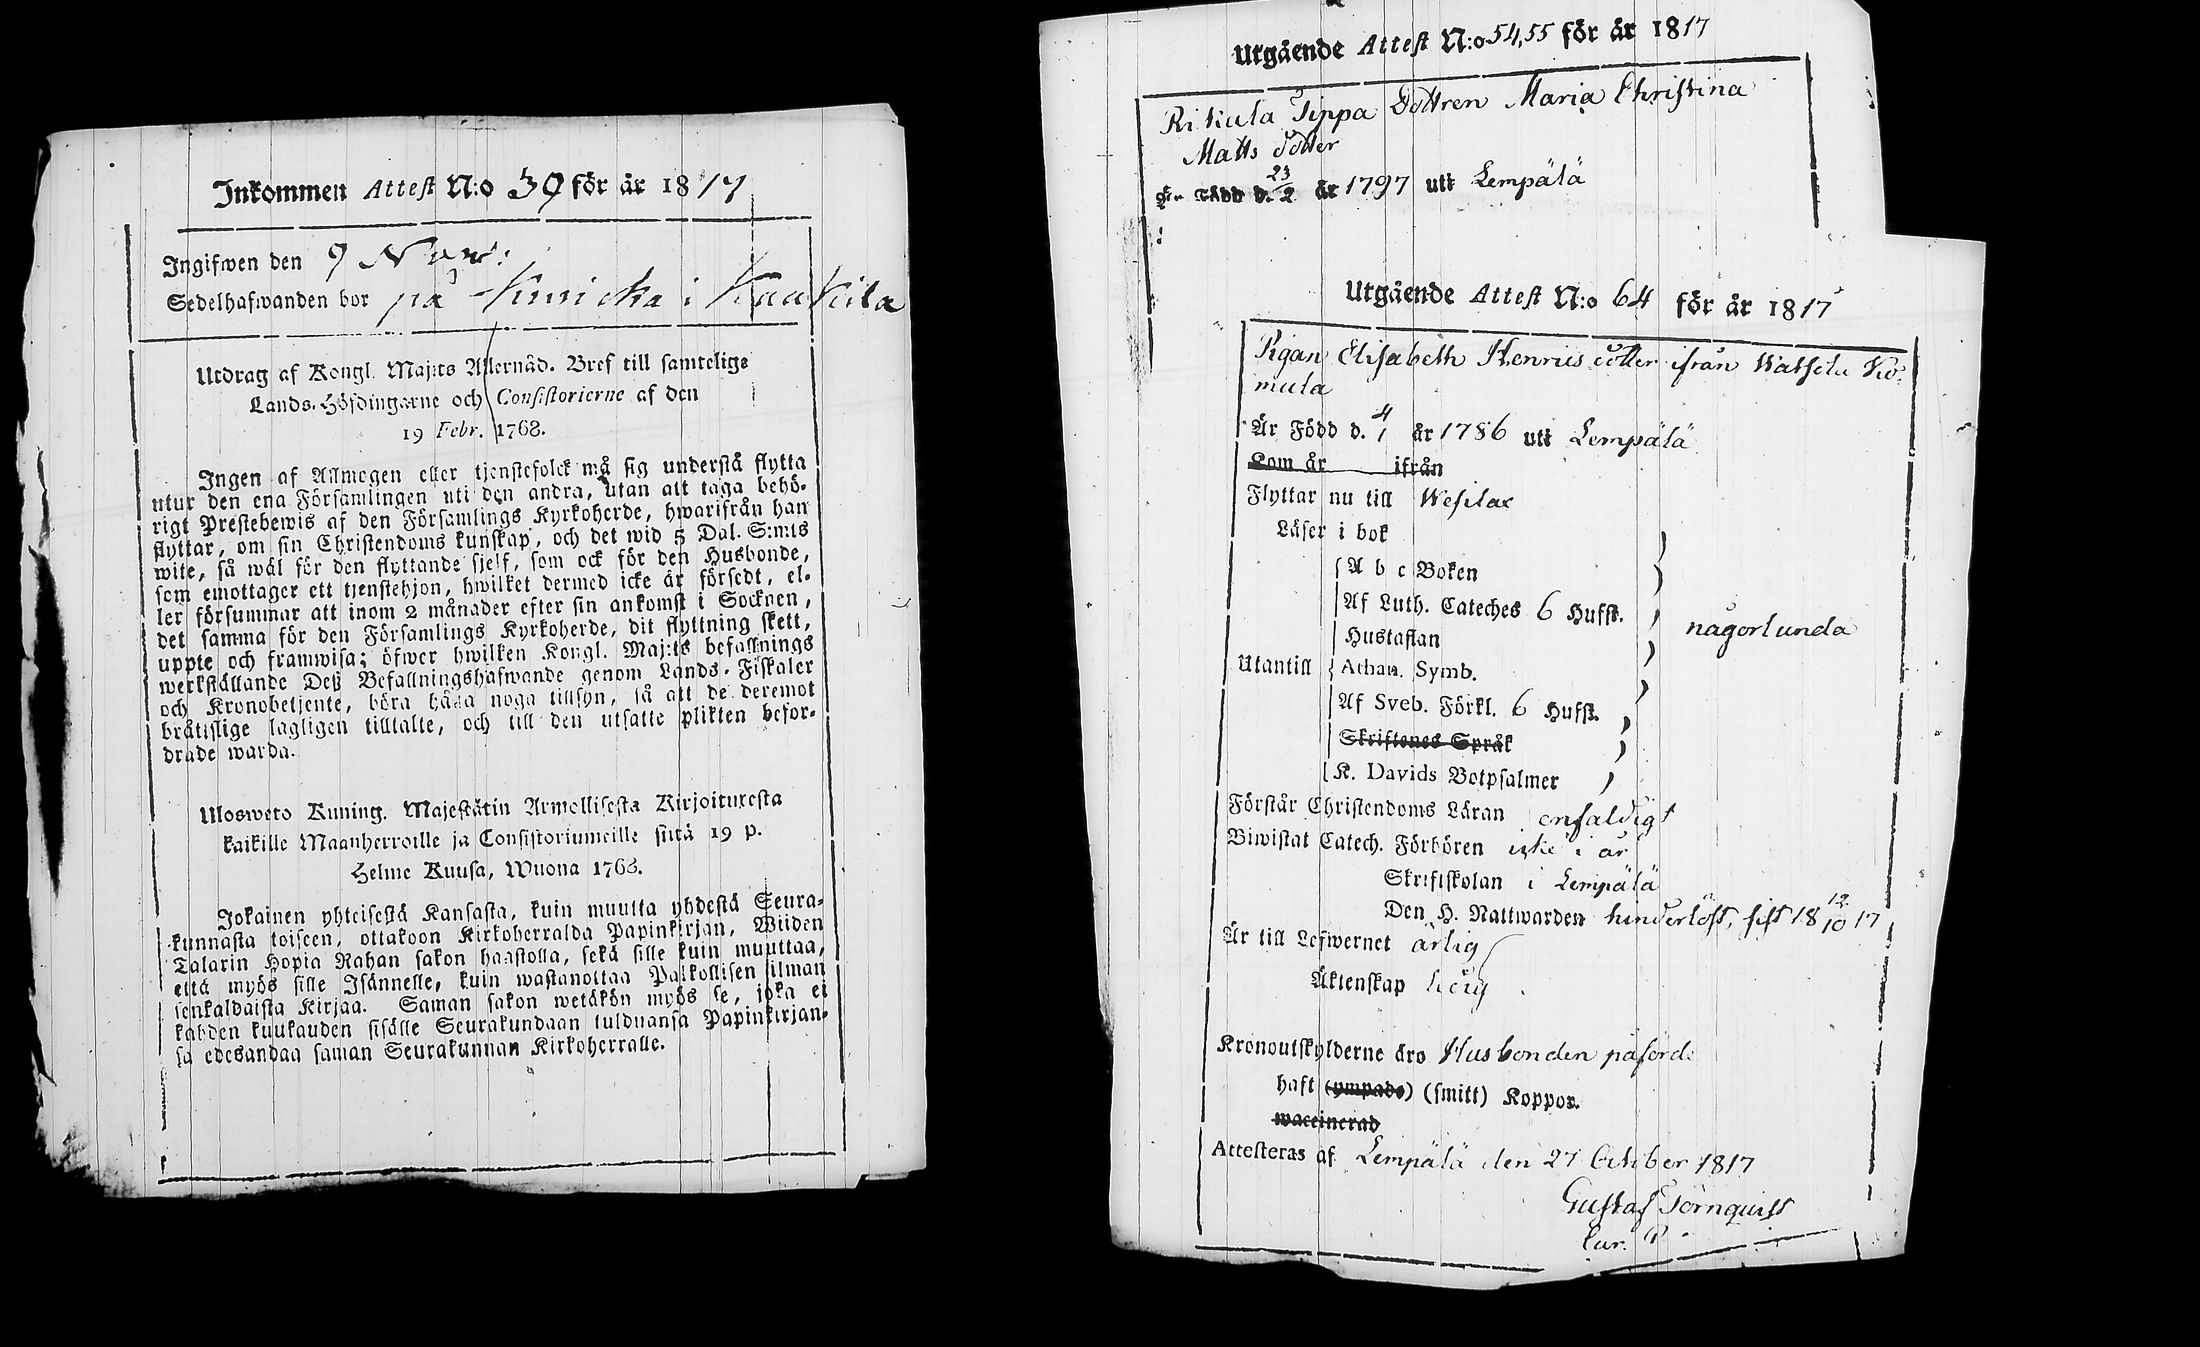 Inkommen Attest N:o 39 för år 1817
Ingifwen den 9 Nov:
Sedelhafwanden bor på i Kaukila
Utdrag af Kongl. Maj:ts Allernåd. Bref till samtelige
Lands-Höfdingarne och Consistorierne af den
19 Febr. 1768.
Ingen af Allmogen eller tjenstefolck må sig understå flytta
utur den ena Församlingen uti den andra, utan att taga behö-
rigt Prestebewis af den Församlings Kyrkoherde, hwarifrån han
flyttar, om sin Christendoms kunskap, och det wid 5 Dal. S:mts
wite, så wäl för den flyttande sjelf, som ock för den Husbonde,
som emottager ett tjenstehjon, hwilket dermed icke är försedt, el-
ler försummar att inom 2 månader efter sin ankomst i Socknen,
det samma för den Församlings Kyrkoherde, dit flyttning skett,
uppte och framwisa; öfwer hwilken Kongl. Maj:ts befallnings
werkställande Deß Befallningshafwande genom Lands-Fiskaler
och Kronobetjente, böra hålla noga tillsyn, så att de deremot
bråtislige lagligen tilltalte, och till den utsatte plikten befor-
drade warda.
Ulosweto Kuning. Majestätin Armollisesta Kirjoituxesta
kaikille Maanherroille ja Consistoriumeille siitä 19 p.
Helme Kuusa, Wuona 1768.
Jokainen yhteisestä Kansasta, kuin muutta yhdestä Seura-
kunnasta toiseen, ottakoon Kirkoherralda Papinkirjan, Wiiden
Talarin Hopia Rahan sakon haastolla, sekä sille kuin muuttaa,
että myös sille Isännelle, kuin wastanottaa Palkollisen ilman
senkaldaista Kirjaa. Saman sakon wetäkön myös se, joka ei
kahden kuukauden sisälle Seurakundaan tulduansa Papinkirjan-
sa edesandaa saman Seurakunnan Kirkoherralle.
Utgående Attest N:o 54,55 för år 1817
Rikula Jippa Dottren Maria Christina
Matts dotter
Är Född d. 23/2 år 1797 uti Lempälä
Utgående Attest N:o 64 för år 1817
Pigan Elisabeth Henrics dotter ifrån Ko-
mula
Är Född d. 4/1 år 1786 uti Lempälä
Kom år ifrån
Flyttar nu till Wesilax
Läser i bok
A b c Boken
Af Luth. Cateches 6 Hufst.
Hustaflan
någorlunda
Utantill Athan. Symb.
Af Sveb. Förkl. 6 Hufst.
Skriftenes Språk
K. Davids Botpsalmer
Förstår Christendoms Läran enfaldigt
Biwistat Catech. Förhören icke i år
Skriftskolan i Lempälä
Den H. Nattwarden hinderlöst, sist 18 12/10 17
Är till Lefwernet ärlig
Äktenskap ledig
Kronoutskylderne äro Husbonden påförde
haft (ympade) (smitt) Koppor.
waccinerad
Attesteras af Lempälä den 27 October 1817
Gustaf Törnquist
Cur. P